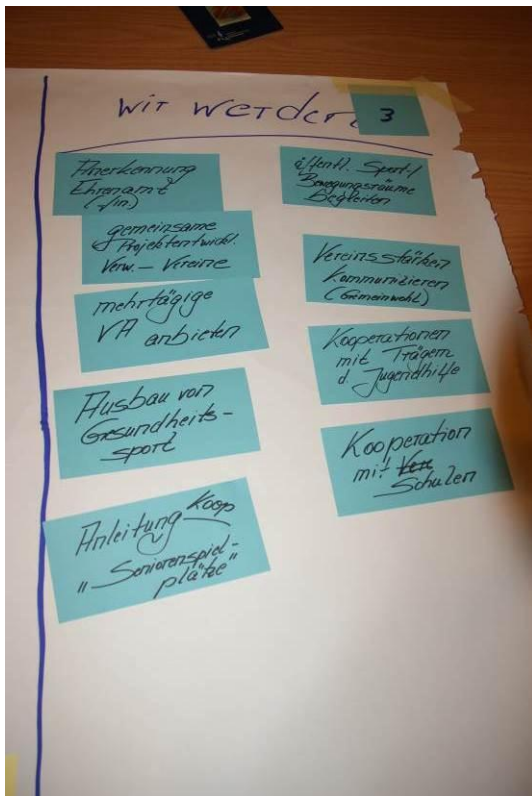 wir werden
3
Anerkennung
Ehrenamt
(fin.)
gemeinsame
Projektentwickl.
Verw. – Vereine
mehrtägige
VA anbieten
Ausbau von
Gesundheits-
sport
Anleitung Koop
"Seniorenspiel-
plätze"
öffentl. Sport-/
Bewegungsräume
begleiten
Vereinsstärken
kommunizieren
(Gemeinwohl)
Kooperationen
mit Trägern
d. Jugendhilfe
Kooperation
mit
Schulen